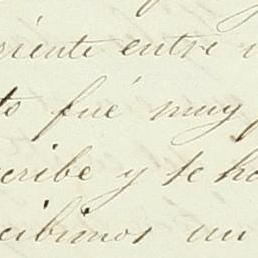 riente entre
to fué muy
cribe y te ho
cibimos un